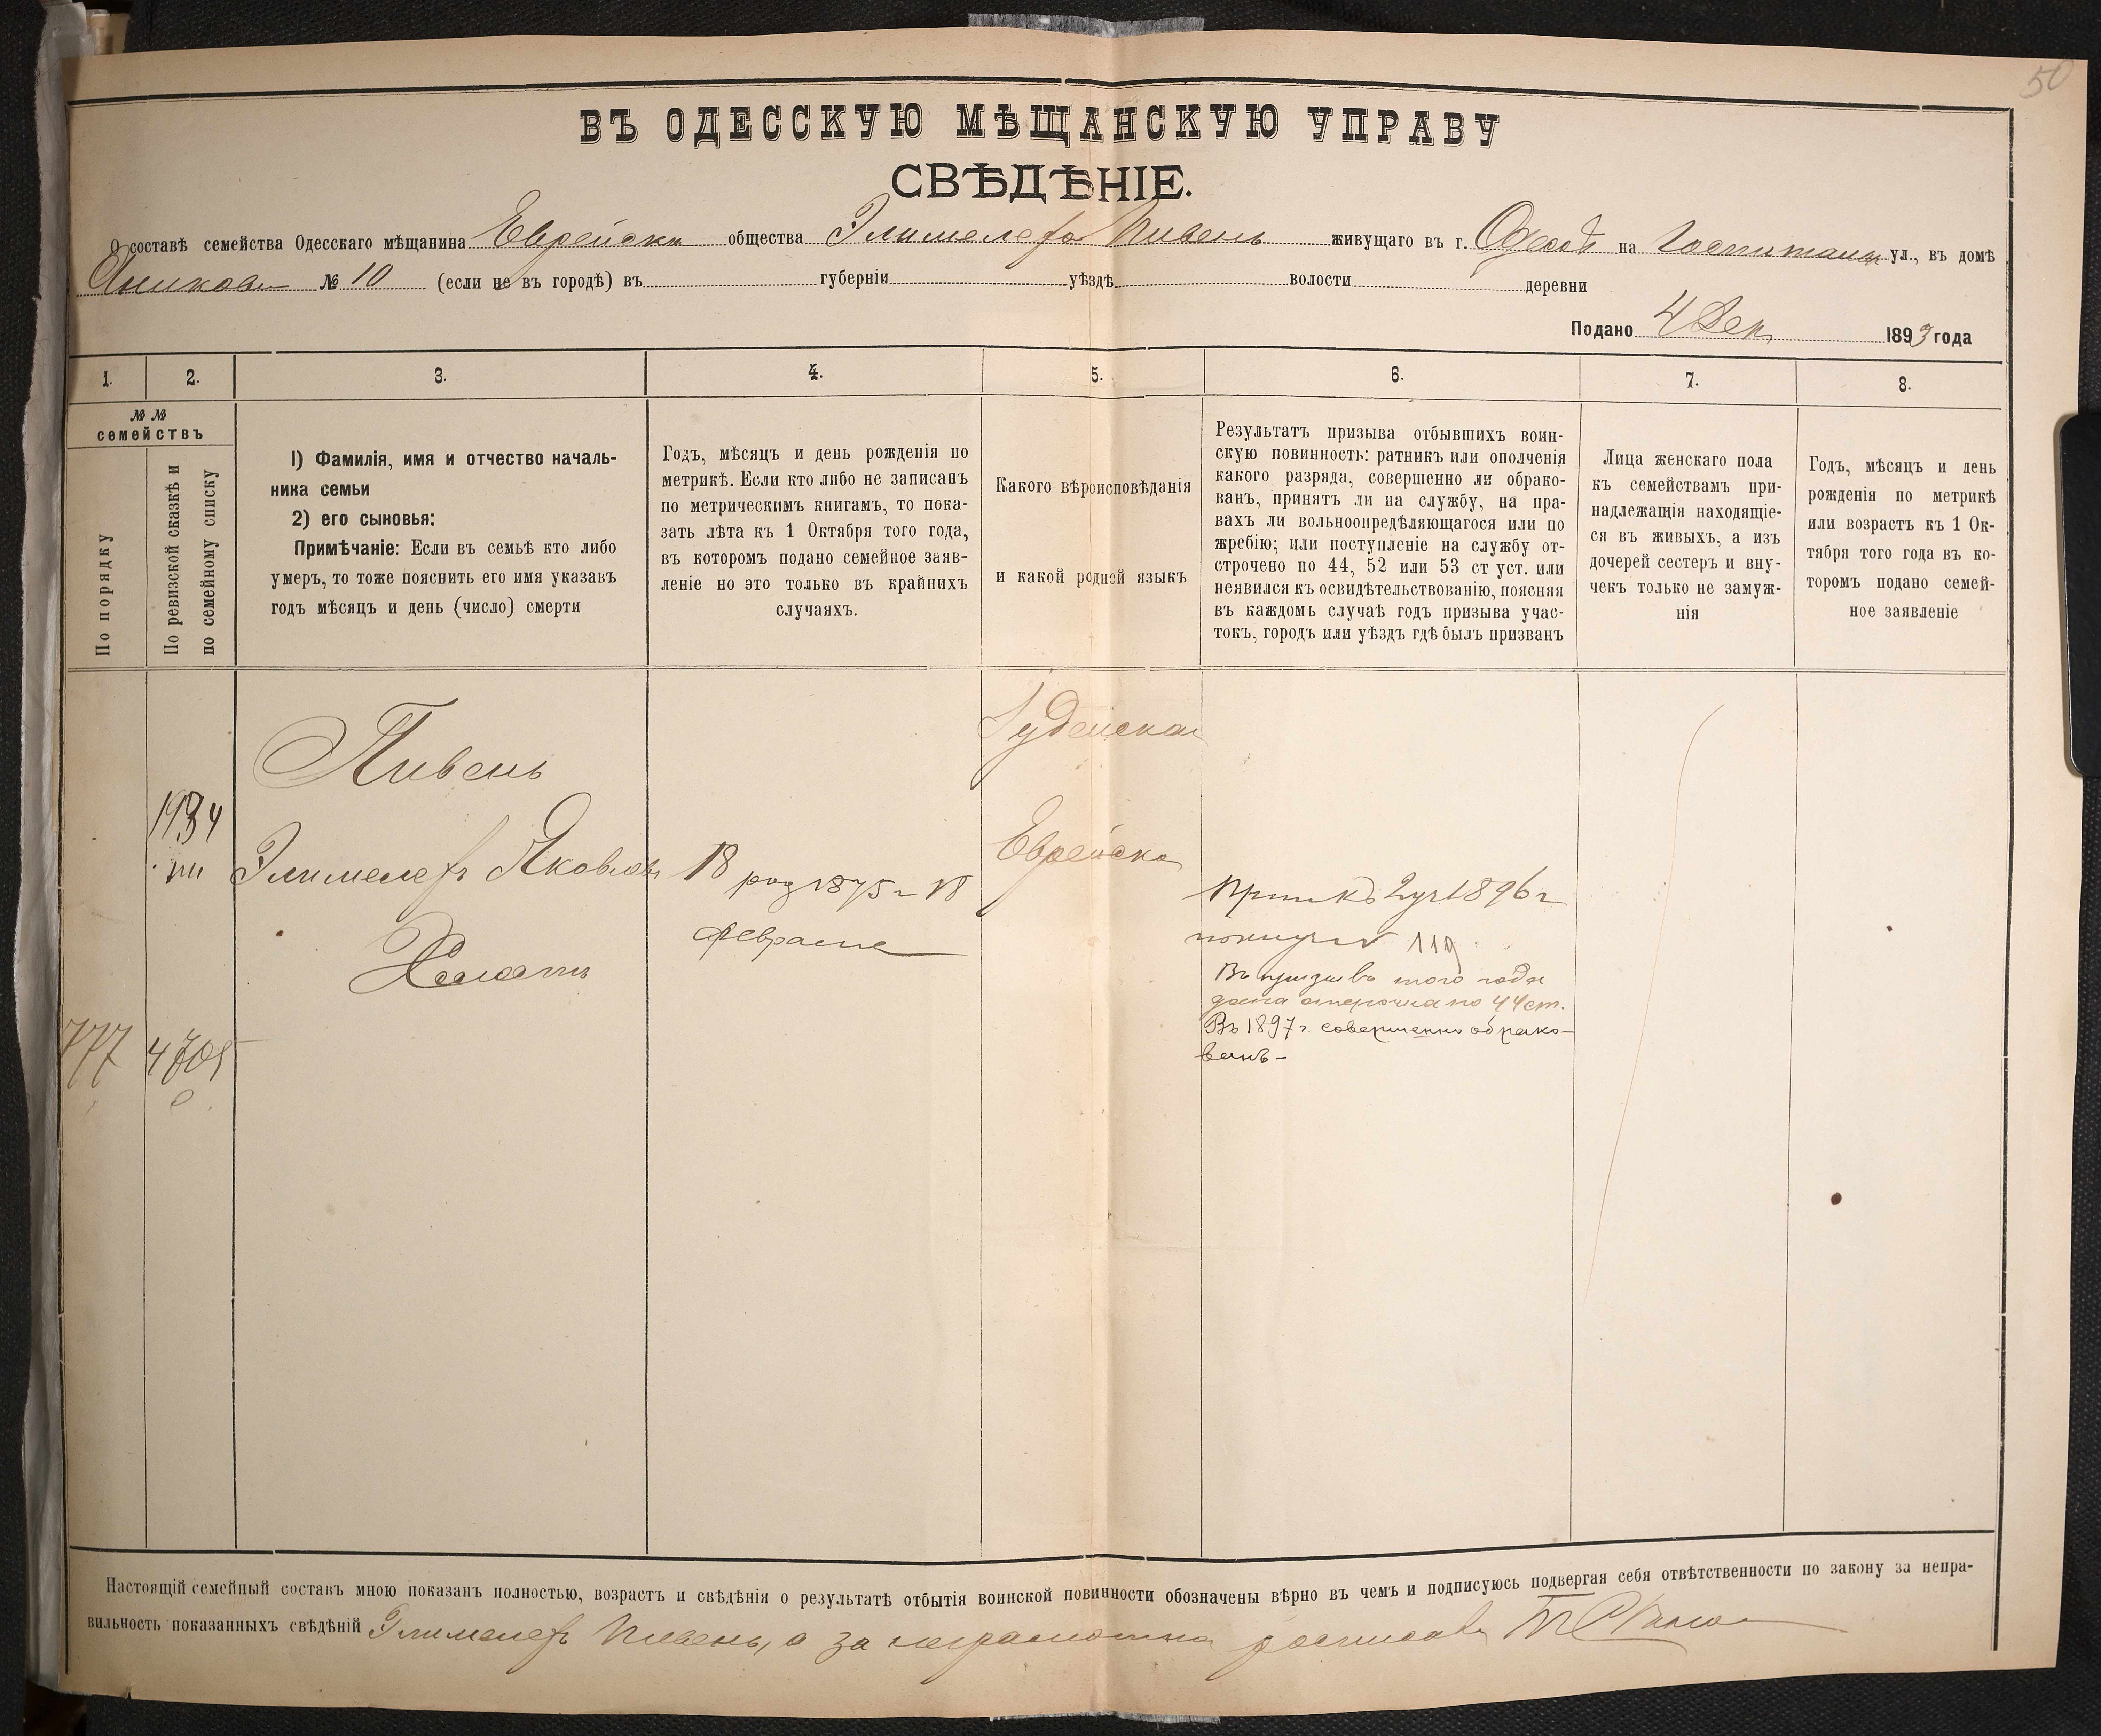 50
ВЪ ОДЕССКУЮ МѢЩАНСКУЮ УПРАВУ
СВѢДѢНІЕ.
О составѣ семейства Одесскаго мѣщанина Еврейска общества Элимелеха Пивень живущаго въ г. Одессѣ на Госпитальн ул., въ домѣ
№ 10 (если не въ городѣ) въ губерніи уѣздѣ волости деревни
Подано 4 Дек 1893 года
1. 2. 3. 4. 5. 6. 7. 8.
№ №
семействъ
По порядку
По ревизской сказкѣ и
по семейному списку
1) Фамилія, имя и отчество началь-
ника семьи
2) его сыновья:
Примѣчаніе: Если въ семьѣ кто либо
умеръ, то тоже пояснить его имя указавъ
годъ мѣсяцъ и день (число) смерти
Годъ, мѣсяцъ и день рожденія по
метрикѣ. Если кто либо не записанъ
по метрическимъ книгамъ, то пока-
зать лѣта къ 1 Октября того года,
въ которомъ подано семейное заяв-
леніе но это только въ крайнихъ
случаяхъ.
Какого вѣроисповѣданія
и какой родней языкъ
Результатъ призыва отбывшихъ воин-
скую повинность: ратникъ или ополченія
какого разряда, совершенно ли обрако-
ванъ, принятъ ли на службу, на пра-
вахъ ли вольноопредѣляющагося или по
жребію; или поступленіе на службу от-
строчено по 44, 52 или 53 ст уст. или
неявился къ освидѣтельствованію, поясняя
въ каждомъ случаѣ годъ призыва учас-
токъ, городъ или уѣздъ гдѣ былъ призванъ
Лица женскаго пола
къ семействамъ при-
надлежащія находящіе-
ся въ живыхъ, а изъ
дочерей сестеръ и вну-
чекъ только не замуж-
нія
Годъ, мѣсяцъ и день
рожденія по метрикѣ
или возрастъ къ 1 Ок-
тября того года въ ко-
торомъ подано семей-
ное заявленіе
Пивень
Элимелехъ Яковлевъ
Холостъ
777
18 род 1875 г 18
февраля
Іудейская
Еврейска
Прип къ 2 уч 1896 г
119
Въ призывъ того года
дана отсрочка по 44 ст.
Въ 1897 г. совершенно обрако-
ванъ -
Настоящій семейный составъ мною показанъ полностью, возрастъ и свѣдѣнія о результатѣ отбытія воинской повинности обозначены вѣрно въ чемъ и подписуюсь подвергая себя отвѣтственности по закону за непра-
вильность показанныхъ свѣдѣній Элимелехъ Пивень, а за неграмотна